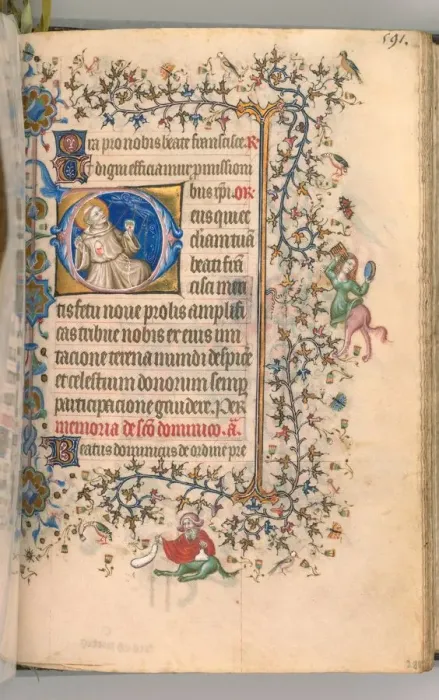 591.
Ora pro nobis beate francisce. R
Et digni efficiamur promissioni
bus xpi. or
eus qui ec
cliam tuā
beati frā
cisci meri
tis fetu noue prolis amplifi
cas tribue nobis ex eius imi
tacione terrena mundi despice
et celestium donorum semp
participacione gaudere. Per
memoria de sco dominico. a.
Beatus dominicus de ordine pre